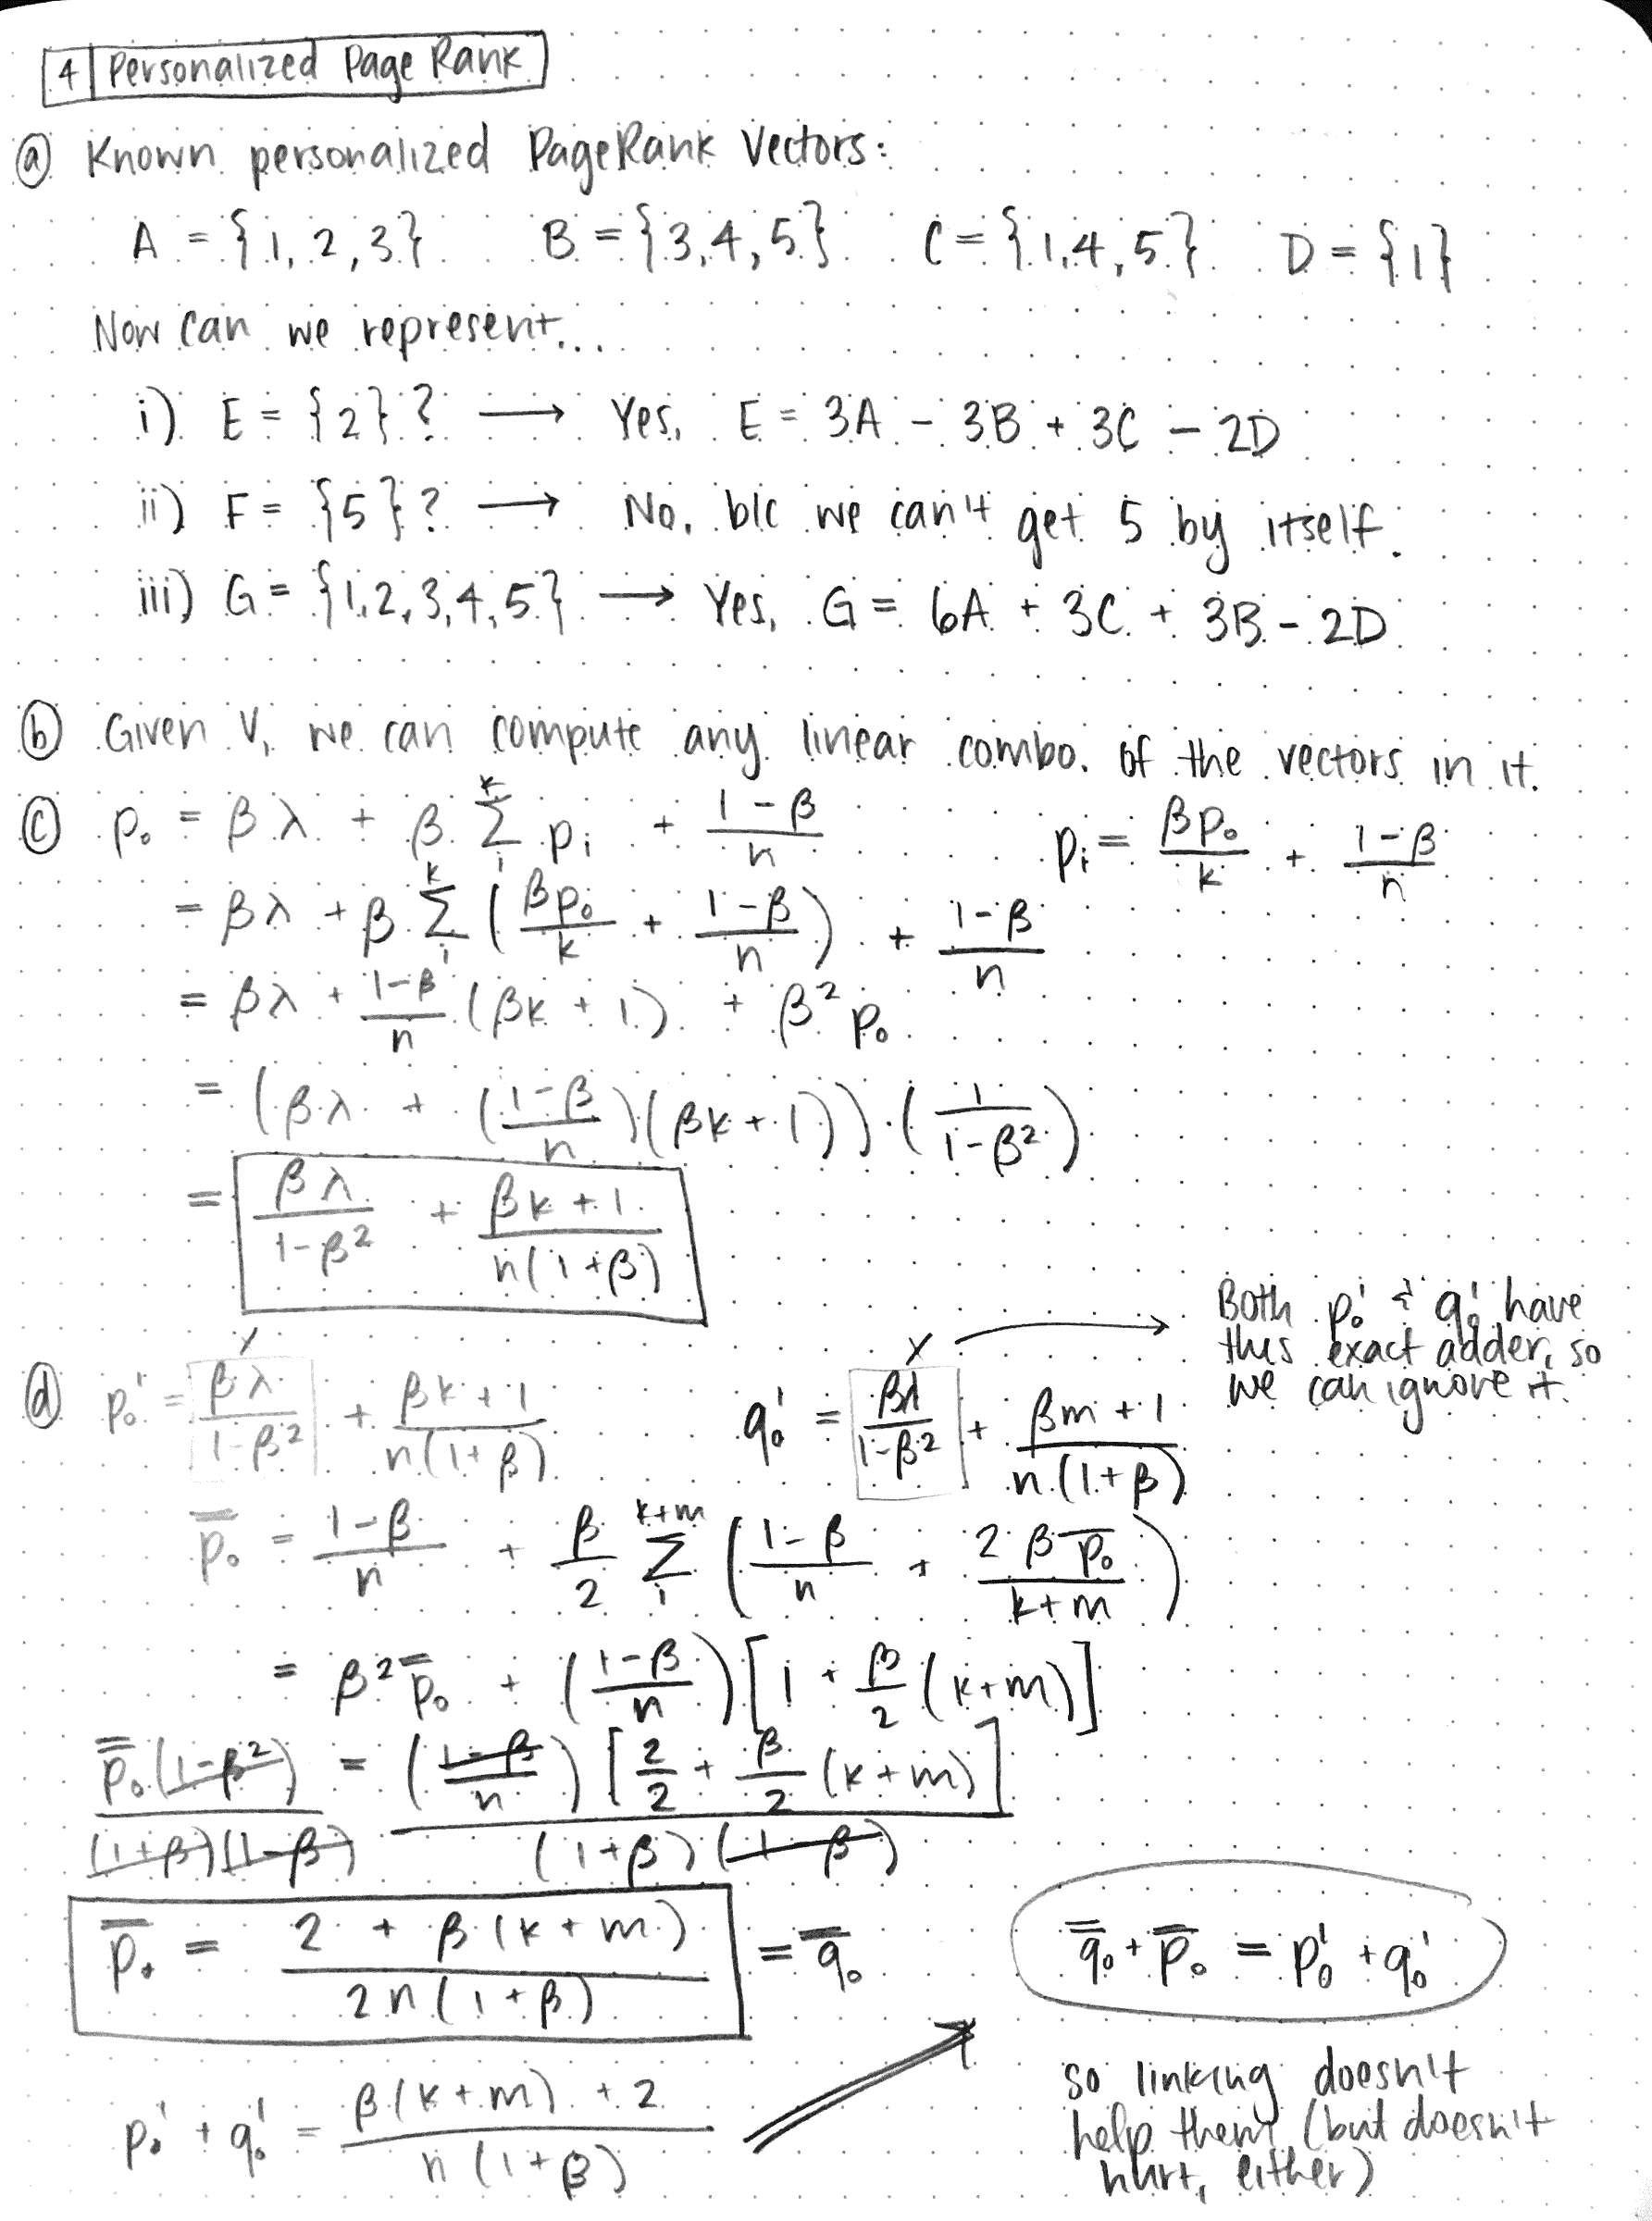 4 | Personalized Page Rank
(a) Known personalized PageRank Vectors:
A = {1, 2, 3} B = {3, 4, 5} C = {1, 4, 5} D = {1}
Now can we represent...
i) E = {2} ? → Yes, E = 3A - 3B + 3C - 2D
ii) F = {5} ? → No, b/c we can't get 5 by itself.
iii) G = {1, 2, 3, 4, 5} → Yes, G = 6A + 3C + 3B - 2D
(b) Given V, we can compute any linear combo. of the vectors in it.
(c) p₀ = βλ + β Σᵢᵏ pᵢ + (1-β)/n pᵢ = βp₀/k + (1-β)/n
= βλ + β Σᵢᵏ (βp₀/k + (1-β)/n) + (1-β)/n
= βλ + (1-β)/n (βk + 1) + β² p₀
= (βλ + ((1-β)/n)(βk + 1)) · (1/(1-β²))
= βλ/(1-β²) + (βk + 1)/(n(1+β))
Both p₀' & q₀' have
this exact adder, so
we can ignore it.
x x →
(d) p₀' = βλ/(1-β²) + (βk + 1)/(n(1+β)) q₀' = βλ/(1-β²) + (βm + 1)/(n(1+β))
p̿₀ = (1-β)/n + β/2 Σᵢᵏ⁺ᵐ ((1-β)/n + 2βp̿₀/(k+m))
= β² p̿₀ + ((1-β)/n) [1 + β/2 (k+m)]
p̿₀(1-β²)/((1+β)(1-β)) = ((1-β)/n) [2/2 + β/2 (k+m)]/((1+β)(1-β))
p̿₀ = (2 + β(k+m))/(2n(1+β)) = q̿₀
q̿₀ + p̿₀ = p₀' + q₀'
p₀' + q₀' = (β(k+m) + 2)/(n(1+β)) ⇒
so linking doesn't
help them (but doesn't
hurt, either)